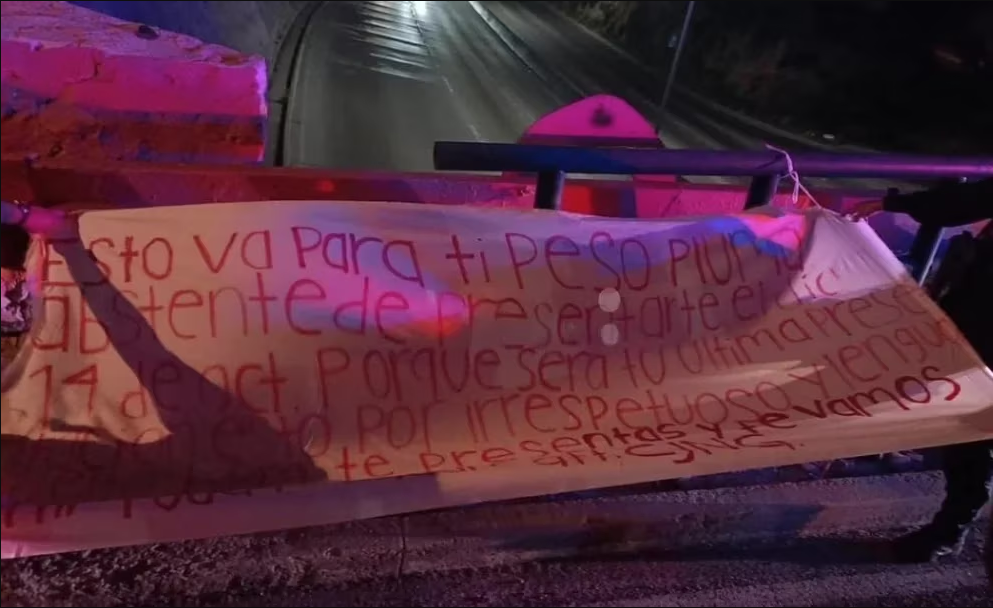 Esto va Para ti Peso Pluma
abstente de presentarte el dic
14 de oct. Porque sera tu última Prese
esto Por irrespetuoso y lengu
te Presentas y te vamos